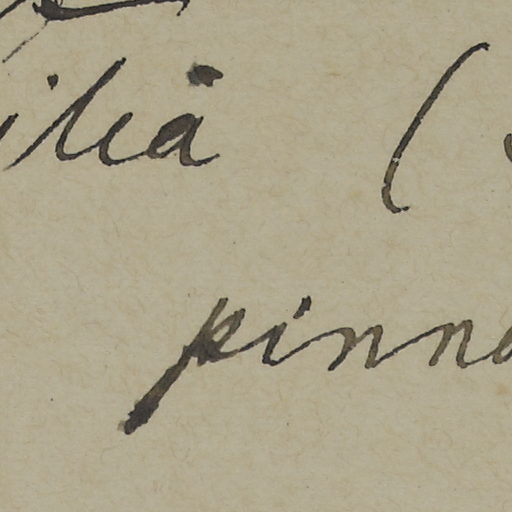 iliä (
pinna